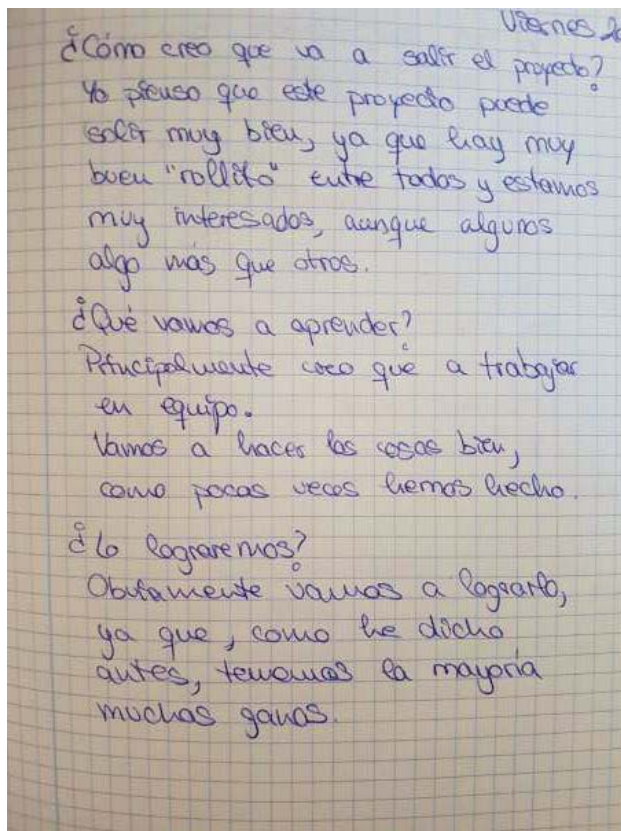 Viernes 2
¿Cómo creo que va a salir el proyecto?
Yo pienso que este proyecto puede
salir muy bien, ya que hay muy
buen "rollito" entre todos y estamos
muy interesados, aunque algunos
algo más que otros.
¿Qué vamos a aprender?
Principalmente creo que a trabajar
en equipo.
Vamos a hacer las cosas bien,
como pocas veces hemos hecho.
¿Lo lograremos?
Obviamente vamos a lograrlo,
ya que, como he dicho
antes, tenemos la mayoría
muchas ganas.